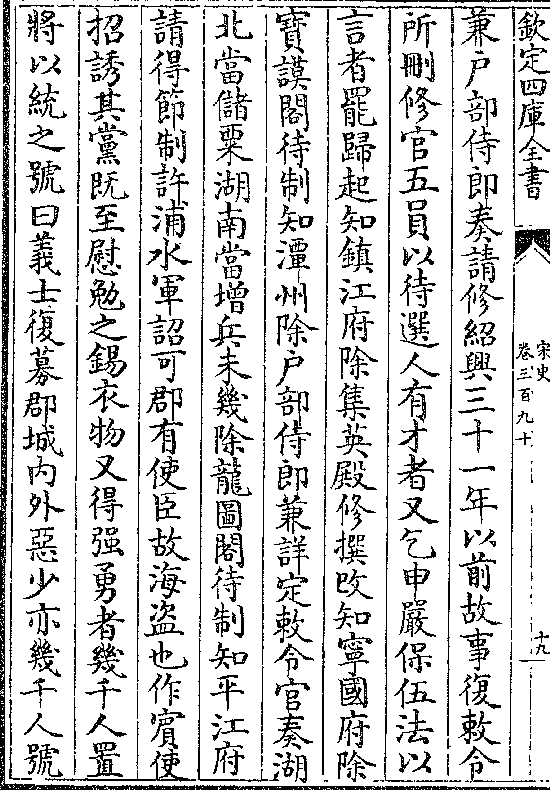 欽定四庫全書
宋史
卷三百九十
十九
兼户部侍郎奏請修紹興三十一年以前故事復敕令
所刪修官五員以待選人有才者又乞申嚴保伍法以
言者罷歸起知鎮江府除集英殿修撰改知寧國府除
寶謨閣待制知潭州除户部侍郎兼詳定敕令官奏湖
北當儲粟湖南當增兵未幾除龍圖閣待制知平江府
請得節制許浦水軍詔可郡有使臣故海盜也作賔使
招誘其黨既至慰勉之錫衣物又得强勇者幾千人置
將以統之號曰義士復募郡城内外惡少亦幾千人號